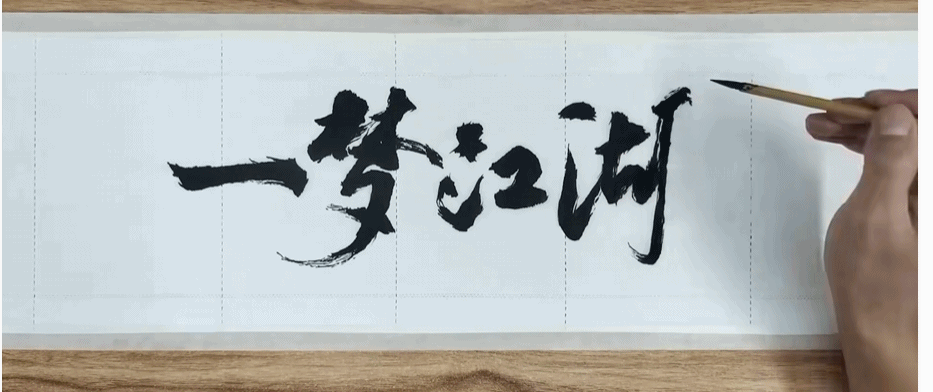 一梦江湖